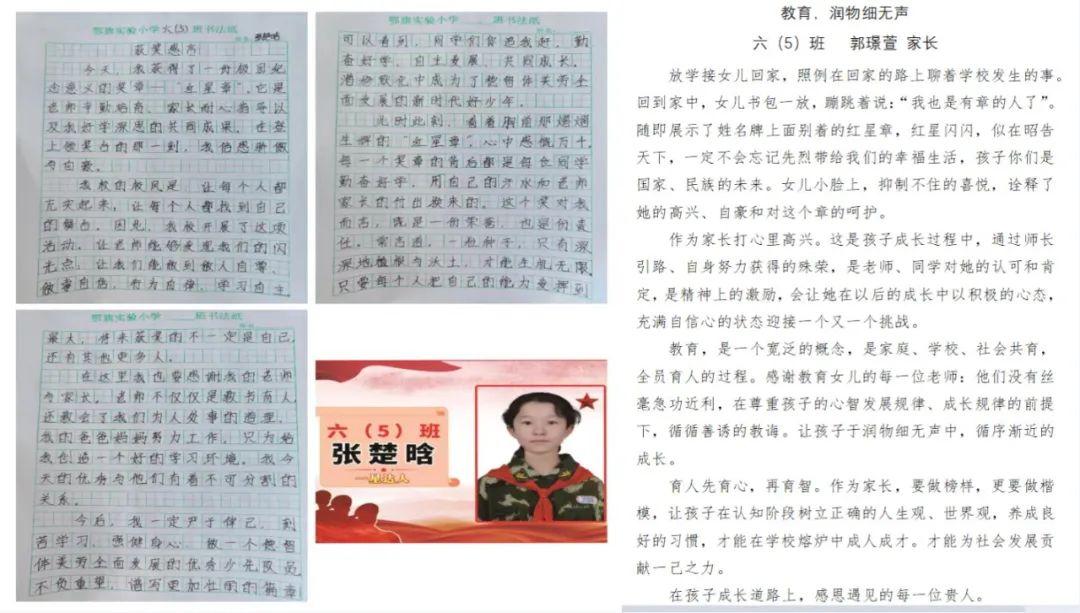 鄂旗实验小学六(5)班书法纸
获奖感言
今天，我获得了一份极富纪
念意义的奖章——“红星章”。它是
老师辛勤培育、家长耐心指导以
及我好学深思的共同成果。在登
上领奖台的那一刻，我倍感骄傲
与自豪。
我校的校风是：让每个人都
充实起来，让每个人都找到自己
的舞台。因此，我校开展了这项
活动。让老师能够发现我们的闪
光点，让我们能做到做人自尊、
做事自信，行为自律，学习自主
鄂旗实验小学 班书法纸
可以看到，同学们你追我赶，勤
奋好学，自主发展，共同成长，
潜移默化中成为了德智体美劳全
面发展的新时代好少年。
此时此刻，看着胸前那熠熠
生辉的“红星章”，心中感慨万千。
每一个奖章的背后都是每位同学
勤奋好学，用自己的汗水和老师
家长的付出换来的。这个奖对我
而言，既是一份荣誉，也是份责
任。常言道，一粒种子，只有深
深地植根与沃土，才能生机无限。
只要每个人把自己的能力发挥到
鄂旗实验小学 班书法纸
最大，将来获奖的不一定是自己，
还有其他更多人。
在这里我也要感谢我的老师
与家长，老师不仅仅是教书育人，
还教会了我们为人处事的道理。
我的爸爸妈妈努力工作，只为给
我创造一个好的学习环境。我今
天的优秀与他们有着不可分割的
关系。
今后，我一定严于律己，刻
苦学习，强健身心，做一个德智
体美劳全面发展的优秀少先队员
不负重望，谱写更加壮丽的篇章
六（5）班
张楚晗
一星达人
教育，润物细无声
六（5）班 郭璟萱 家长
放学接女儿回家，照例在回家的路上聊着学校发生的事。
回到家中，女儿书包一放，蹦跳着说：“我也是有章的人了”。
随即展示了姓名牌上面别着的红星章，红星闪闪，似在昭告
天下，一定不会忘记先烈带给我们的幸福生活，孩子你们是
国家、民族的未来。女儿小脸上，抑制不住的喜悦，诠释了
她的高兴、自豪和对这个章的呵护。
作为家长打心里高兴。这是孩子成长过程中，通过师长
引路、自身努力获得的殊荣，是老师、同学对她的认可和肯
定，是精神上的激励，会让她在以后的成长中以积极的心态，
充满自信心的状态迎接一个又一个挑战。
教育，是一个宽泛的概念，是家庭、学校、社会共育，
全员育人的过程。感谢教育女儿的每一位老师：他们没有丝
毫急功近利，在尊重孩子的心智发展规律、成长规律的前提
下，循循善诱的教诲。让孩子于润物细无声中，循序渐近的
成长。
育人先育心，再育智。作为家长，要做榜样，更要做楷
模，让孩子在认知阶段树立正确的人生观、世界观，养成良
好的习惯，才能在学校熔炉中成人成才。才能为社会发展贡
献一己之力。
在孩子成长道路上，感恩遇见的每一位贵人。